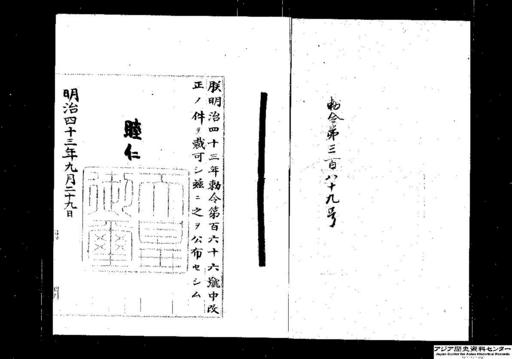 勅令第三百八十九号
朕明治四十三年勅令第百六十六號中改
正ノ件ヲ裁可シ玆ニ之ヲ公布セシム
睦仁
天皇
御璽
明治四十三年九月二十九日
アジア歴史資料センター
Japan Center for Asian Historical Records